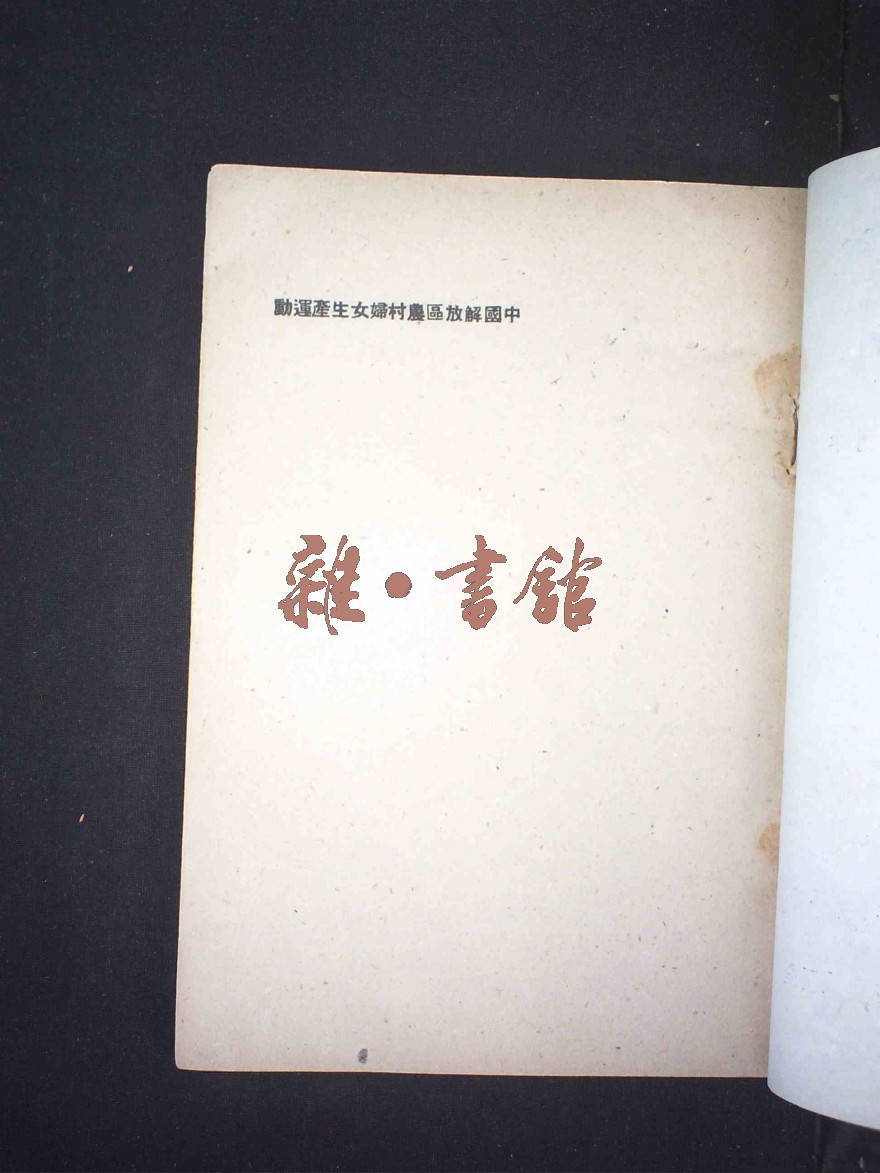 中國解放區農村婦女生產運動
雜·書館